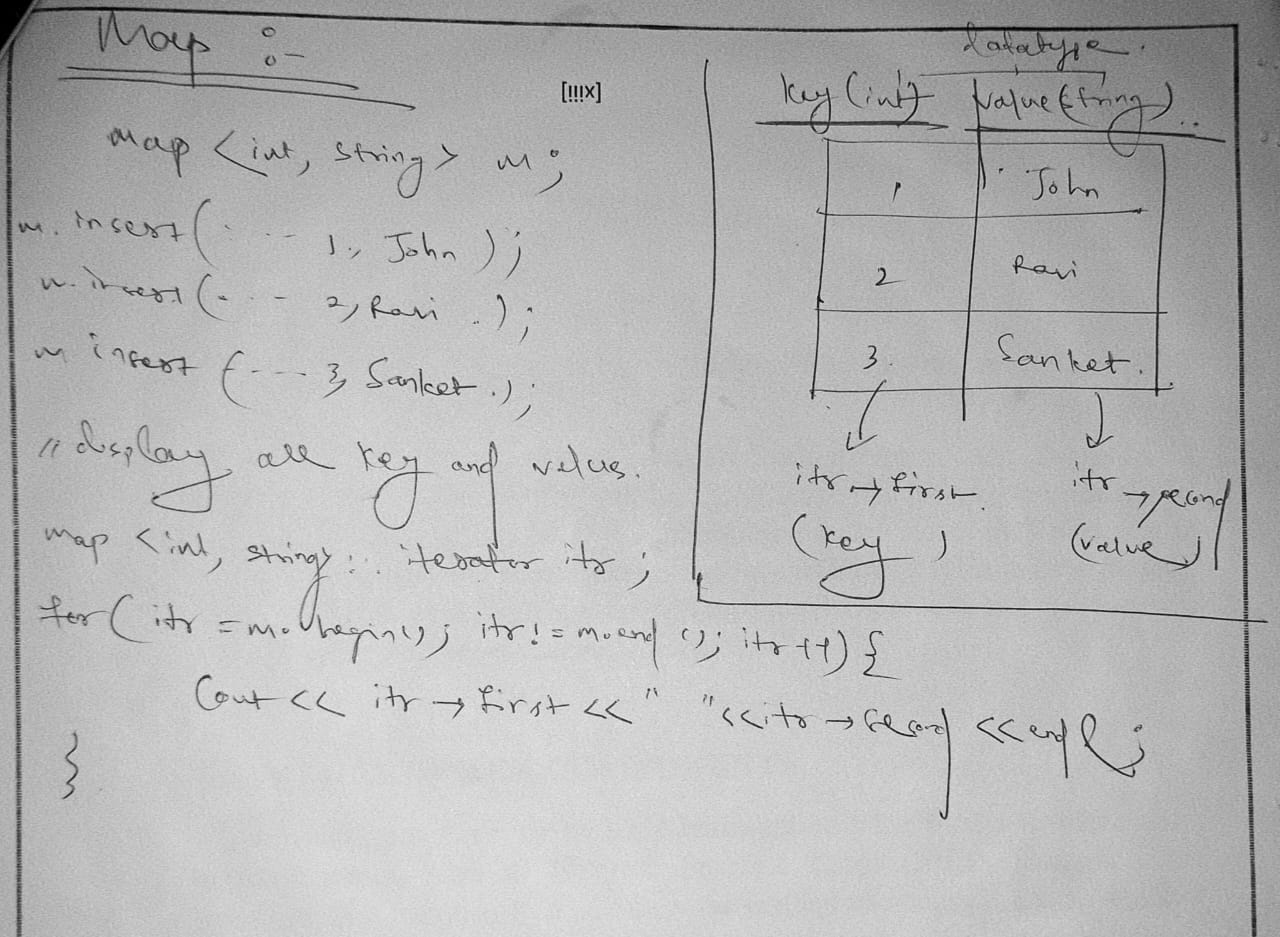 Map :-
[!!!X]
map <int, string> m;
m. insert( ---- 1, John );
m. insert( - - - 2, Ravi . );
m insert (--- 3, Sanket .);
// display all key and velus.
map <int, string> :: iterator itr ;
for( itr = m.begin(); itr != m.end (); itr ++) {
Cout << itr → first << " " << itr → second << endl ;
}
datatype.
key (int) value (string)
1 John
2 Ravi
3. Sanket.
itr → first. itr → second
(key) (value)